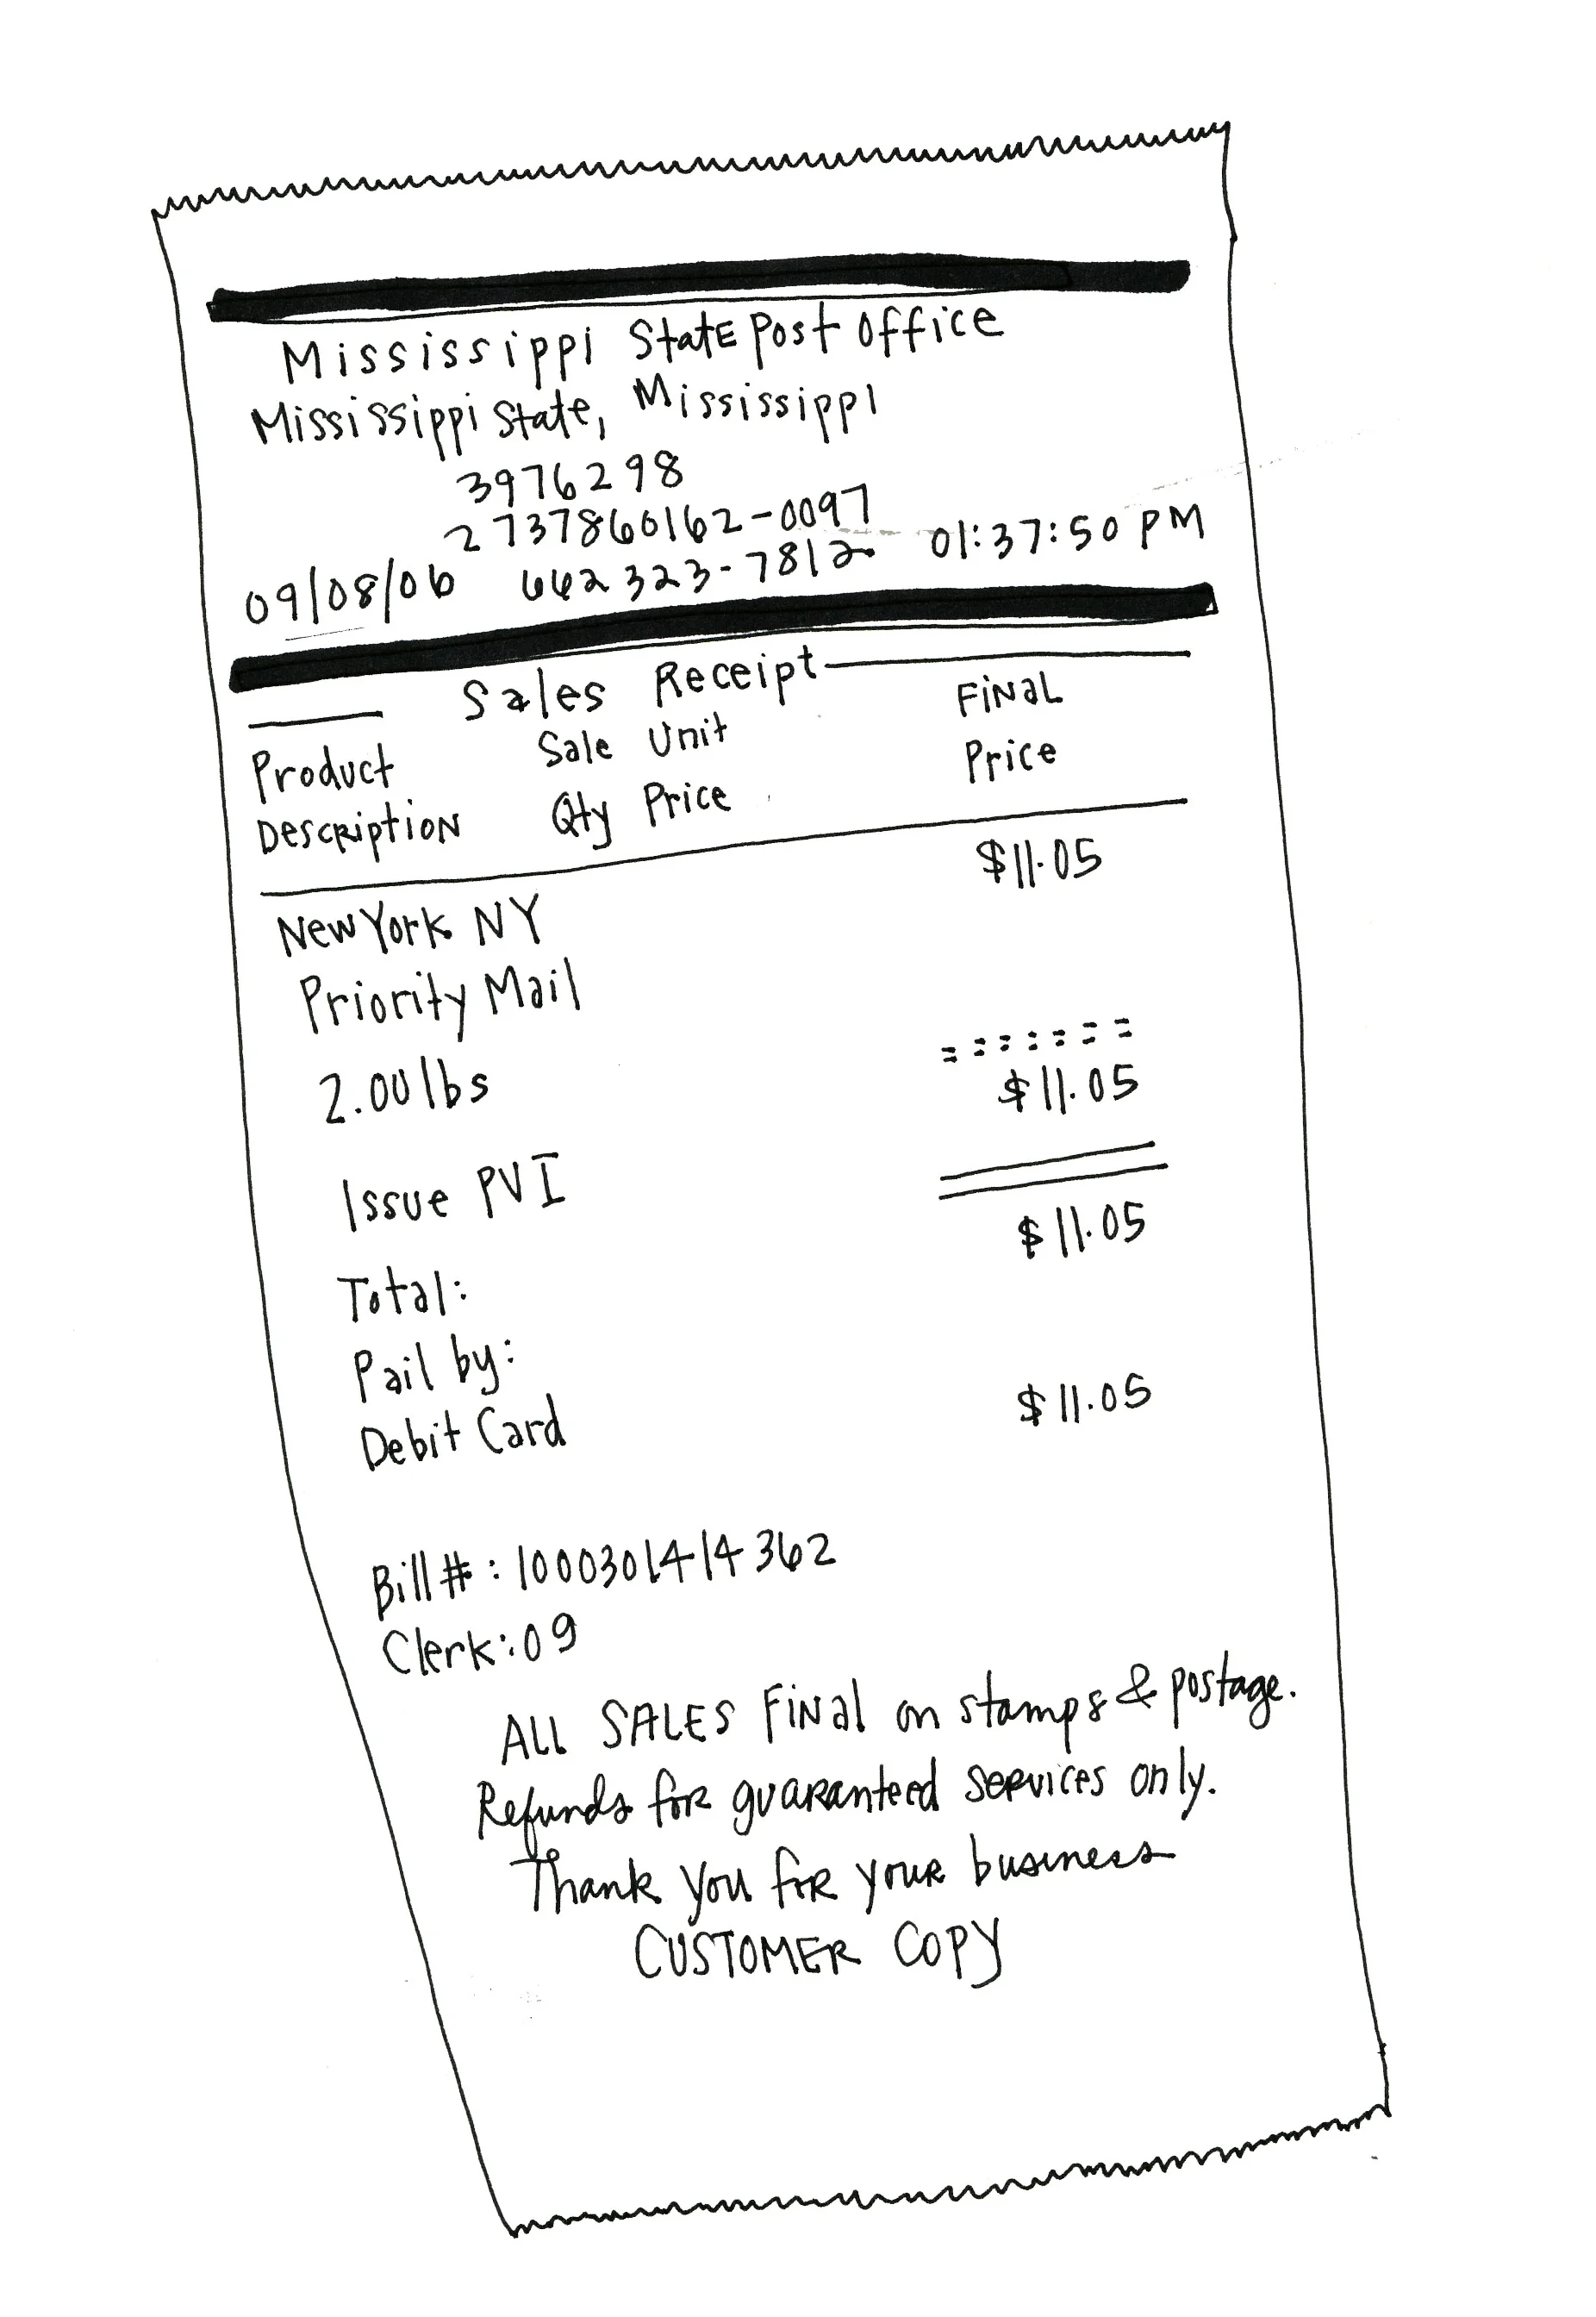 Mississippi State Post Office
Mississippi State, Mississippi
3976298
2737860162-0097
09/08/06 662 323-7812 01:37:50 PM
Sales Receipt
Product Sale Unit FINAL
Description Qty Price Price
$11.05
New York NY
Priority Mail
2.00 lbs
=======
$11.05
Issue PVI
$11.05
Total:
Pail by:
Debit Card $11.05
Bill#: 1000301414362
Clerk: 09
ALL SALES FINAL on stamps & postage.
Refunds for guaranteed services only.
Thank you for your business
CUSTOMER COPY